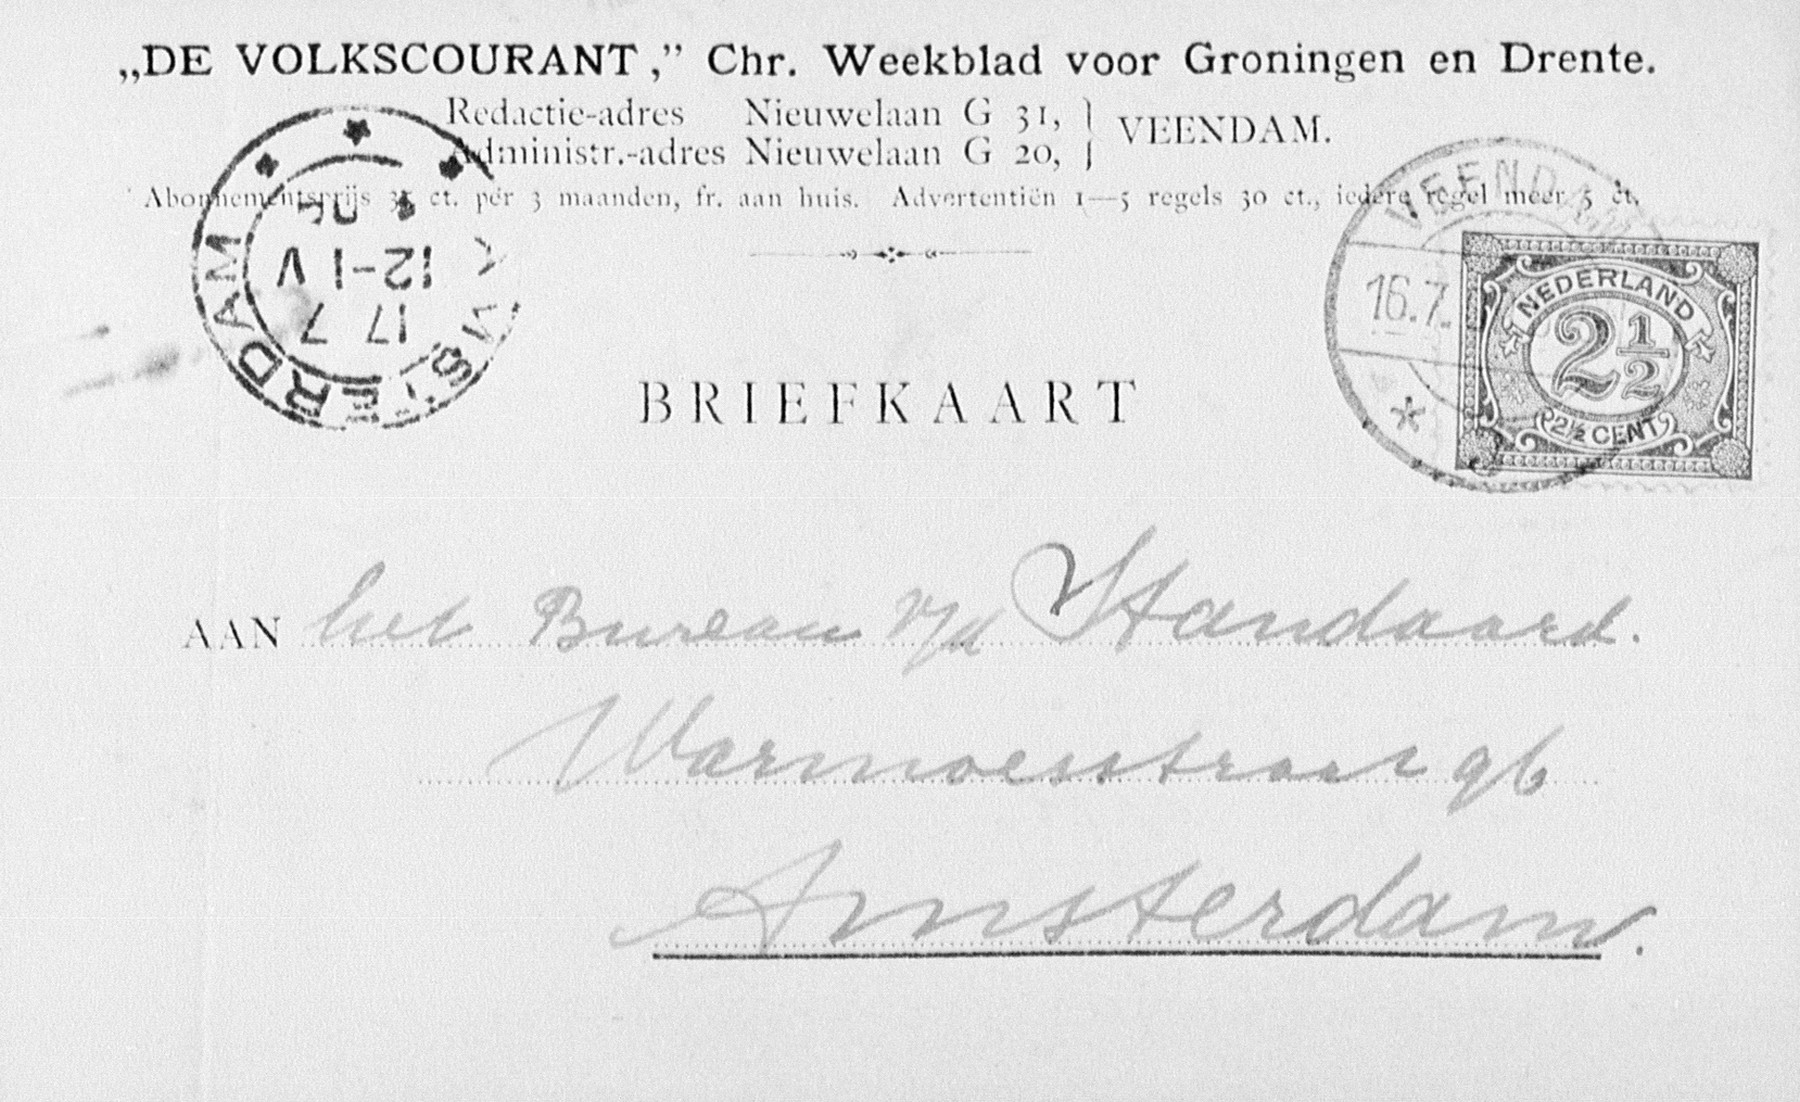 „DE VOLKSCOURANT,” Chr. Weekblad voor Groningen en Drente.
Redactie-adres Nieuwelaan G 31, } VEENDAM.
Administr.-adres Nieuwelaan G 20,
Abonnementsprijs 35 ct. per 3 maanden, fr. aan huis. Advertentiën 1—5 regels 30 ct., iedere regel meer 5 ct.
AMSTERDAM
17 7
12-1 V
VEENDAM
16.7.
NEDERLAND
2½
2½ CENT
BRIEFKAART
AAN het Bureau v/d Standaard.
Warmoesstraat 96
Amsterdam.